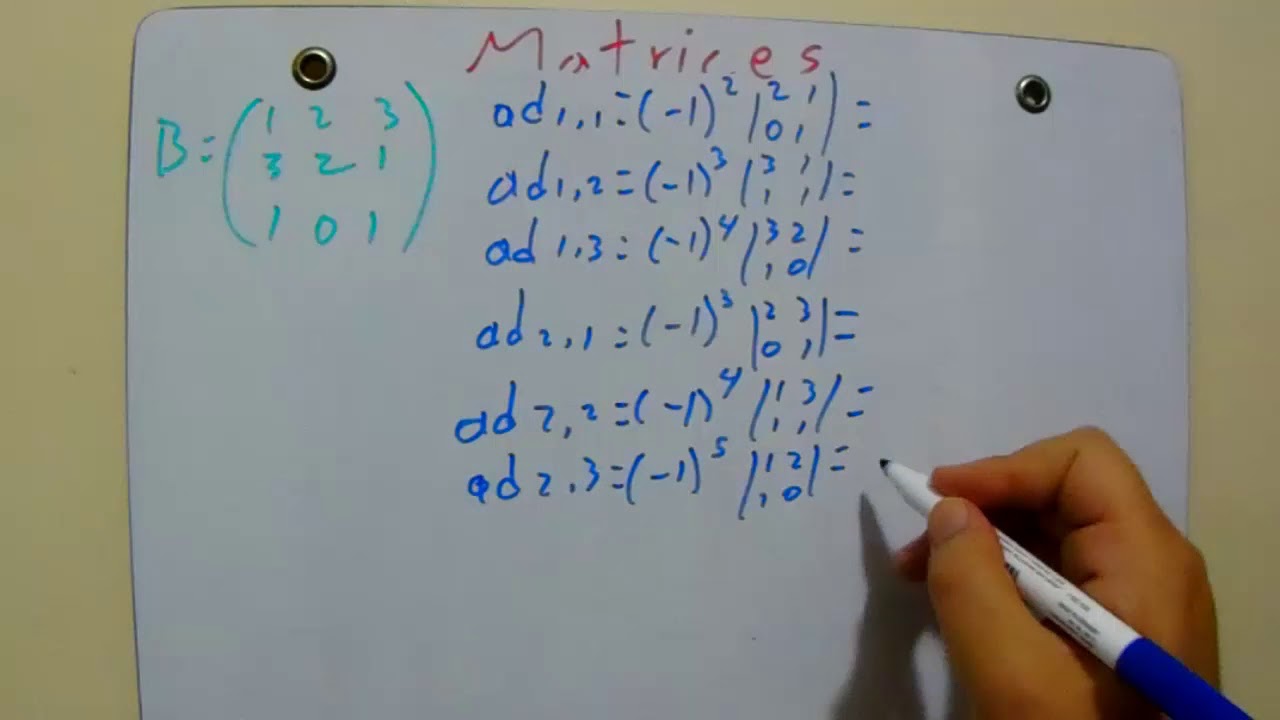 Matrices
B=(1 2 3
3 2 1
1 0 1)
ad1,1=(-1)² |2 1
0 1|=
ad1,2=(-1)³ |3 1
1 1|=
ad1,3=(-1)⁴ |3 2
1 0|=
ad2,1=(-1)³ |2 3
0 1|=
ad2,2=(-1)⁴ |1 3
1 1|=
ad2,3=(-1)⁵ |1 2
1 0|=